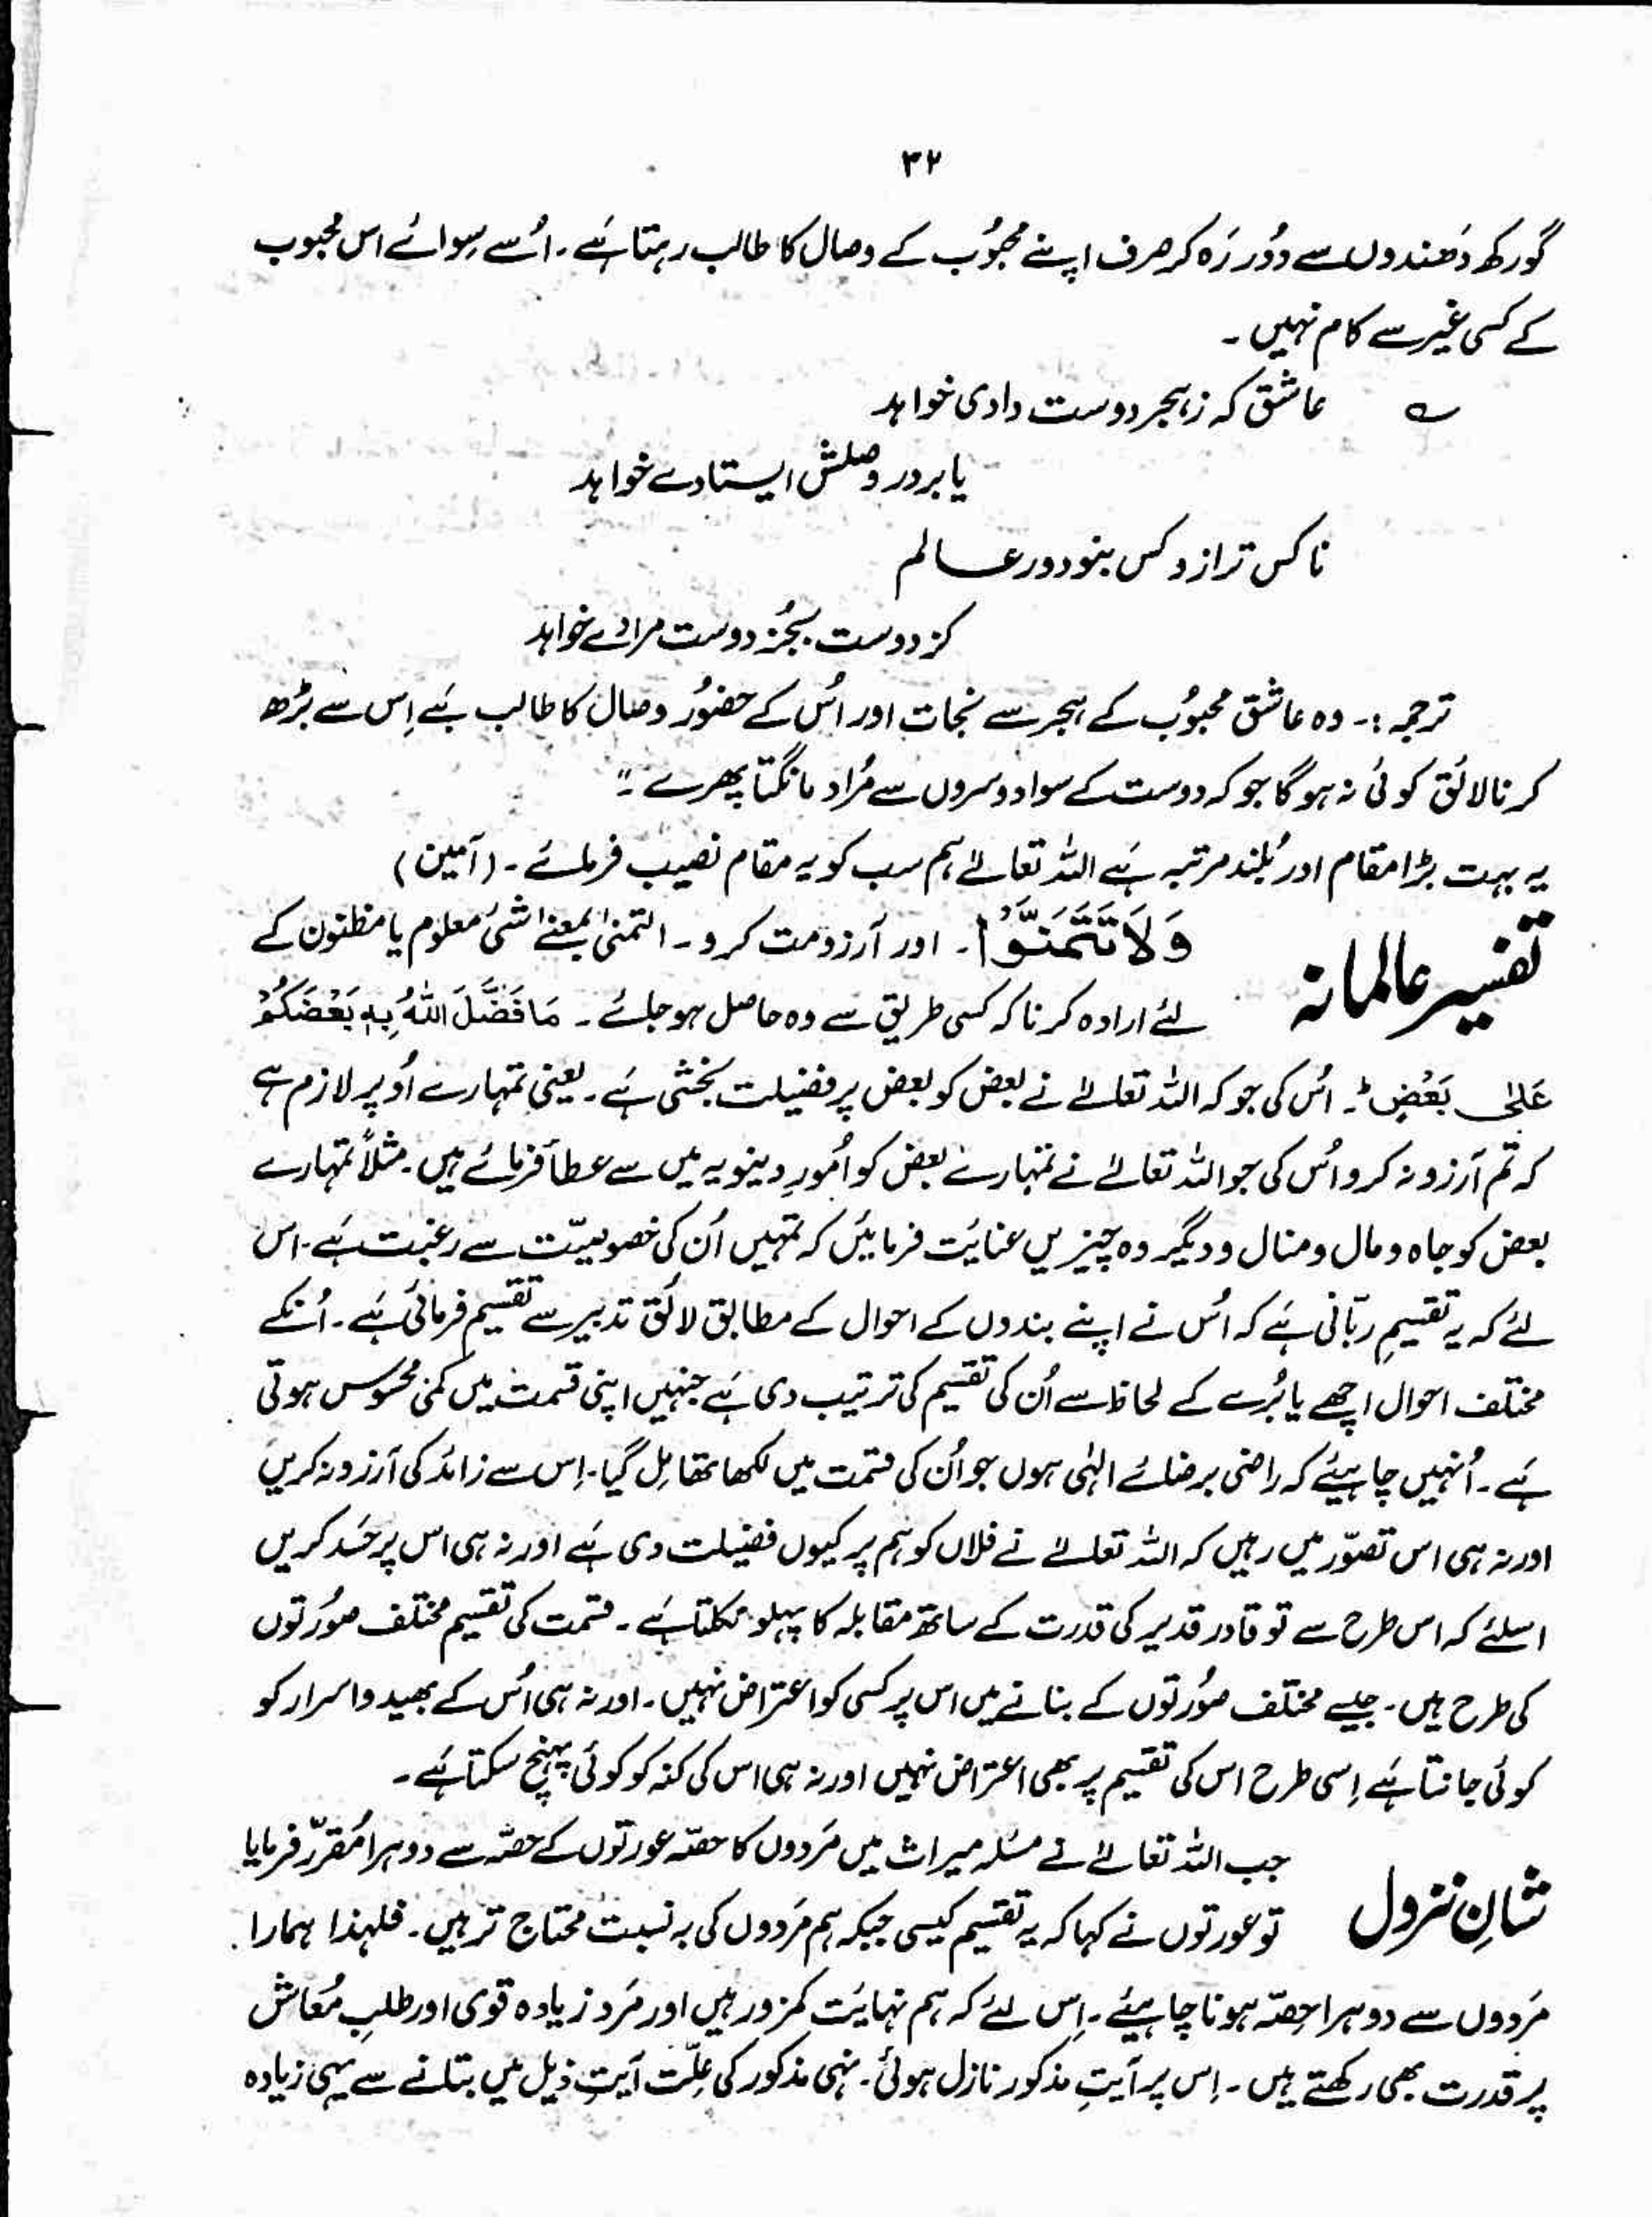 ۳۲
گورکھ دَھندوں سے دُور رَہ کر صرف اپنے محبُوب کے وصال کا طالب رہتا ہَے۔ اُسے سِوائے اس محبوب
کے کسی غیر سے کام نہیں۔
؎ عاشق کہ زہجر دوست دادی خواہد
یا بر در وصلش ایستادے خواہد
نا کس تر ازو کس بنود در عالم
کز دوست بجُز دوست مرادے خواہد
ترجمہ:۔ وہ عاشق محبُوب کے ہجر سے نجات اور اُس کے حضُور وصال کا طالب ہَے اِس سے بڑھ
کر نالائق کوئی نہ ہوگا جو کہ دوست کے سوا دوسروں سے مُراد مانگتا پھرے۔"
یہ بہت بڑا مقام اور بُلند مرتبہ ہَے اللہ تعالےٰ ہم سب کو یہ مقام نصیب فرمائے۔ (آمین)
تفسیر عالمانہ وَلَا تَتَمَنَّوْا۔ اور آرزو مت کرو۔ التمنیٰ بمعنےٰ اشئ معلوم یا مظنون کے
لئے ارادہ کرنا کہ کسی طریق سے وہ حاصل ہو جائے۔ مَا فَضَّلَ اللّٰہُ بِہٖ بَعْضَکُمْ
عَلٰی بَعْضٍ ط۔ اُس کی جو کہ اللہ تعالےٰ نے بعض کو بعض پر فضیلت بخشی ہَے۔ یعنی تمہارے اُوپر لازم ہے
کہ تم آرزو نہ کرو اُس کی جو اللہ تعالےٰ نے تمہارے بعض کو اُمورِ دینویہ میں سے عطا فرمائے ہیں۔ مثلاً تمہارے
بعض کو جاہ و مال و منال و دیگر وہ چیزیں عنائت فرمائیں کہ تمہیں اُن کی خصوصیّت سے رغبت ہَے۔ اس
لئے کہ یہ تقسیمِ ربّانی ہَے کہ اُس نے اپنے بندوں کے احوال کے مطابق لائق تدبیر سے تقسیم فرمائی ہَے۔ اُنکے
مختلف احوال اچھے یا بُرے کے لحاظ سے اُن کی تقسیم کی ترتیب دی ہَے جنہیں اپنی قسمت میں کمی محسوس ہوتی
ہَے۔ اُنہیں چاہیئے کہ راضی برضائے الہٰی ہوں جو اُن کی قسمت میں لکھا تھا مِل گیا۔ اِس سے زائد کی آرزو نہ کریں
اور نہ ہی اس تصوّر میں رہیں کہ اللہ تعالےٰ نے فلاں کو ہم پر کیوں فضیلت دی ہَے اور نہ ہی اس پر حَسد کریں
اسلئے کہ اس طرح سے تو قادر قدیر کی قدرت کے ساتھ مقابلہ کا پہلو نکلتا ہَے۔ قسمت کی تقسیم مختلف صُورتوں
کی طرح ہیں۔ جیسے مختلف صُورتوں کے بنانے میں اس پر کسی کو اعتراض نہیں۔ اور نہ ہی اُس کے بھید و اسرار کو
کوئی جانتا ہَے اِسی طرح اس کی تقسیم پر بھی اعتراض نہیں اور نہ ہی اس کی کنہ کو کوئی پہنچ سکتا ہَے۔
شانِ نزول جب اللہ تعالےٰ نے مسئلہ میراث میں مَردوں کا حصّہ عورتوں کے حصّہ سے دوہرا مُقرّر فرمایا
تو عورتوں نے کہا کہ یہ تقسیم کیسی جبکہ ہم مَردوں کی بہ نسبت محتاج تر ہیں۔ فلہذا ہمارا
مَردوں سے دوہرا حِصّہ ہونا چاہیئے۔ اِس لئے کہ ہم نہائت کمزور ہیں اور مَرد زیادہ قوی اور طلبِ مُعاش
پر قدرت بھی رکھتے ہیں۔ اِس پر آیتِ مذکور نازل ہوئی۔ نہی مذکور کی عِلّت آیتِ ذیل میں بتانے سے یہی زیادہ